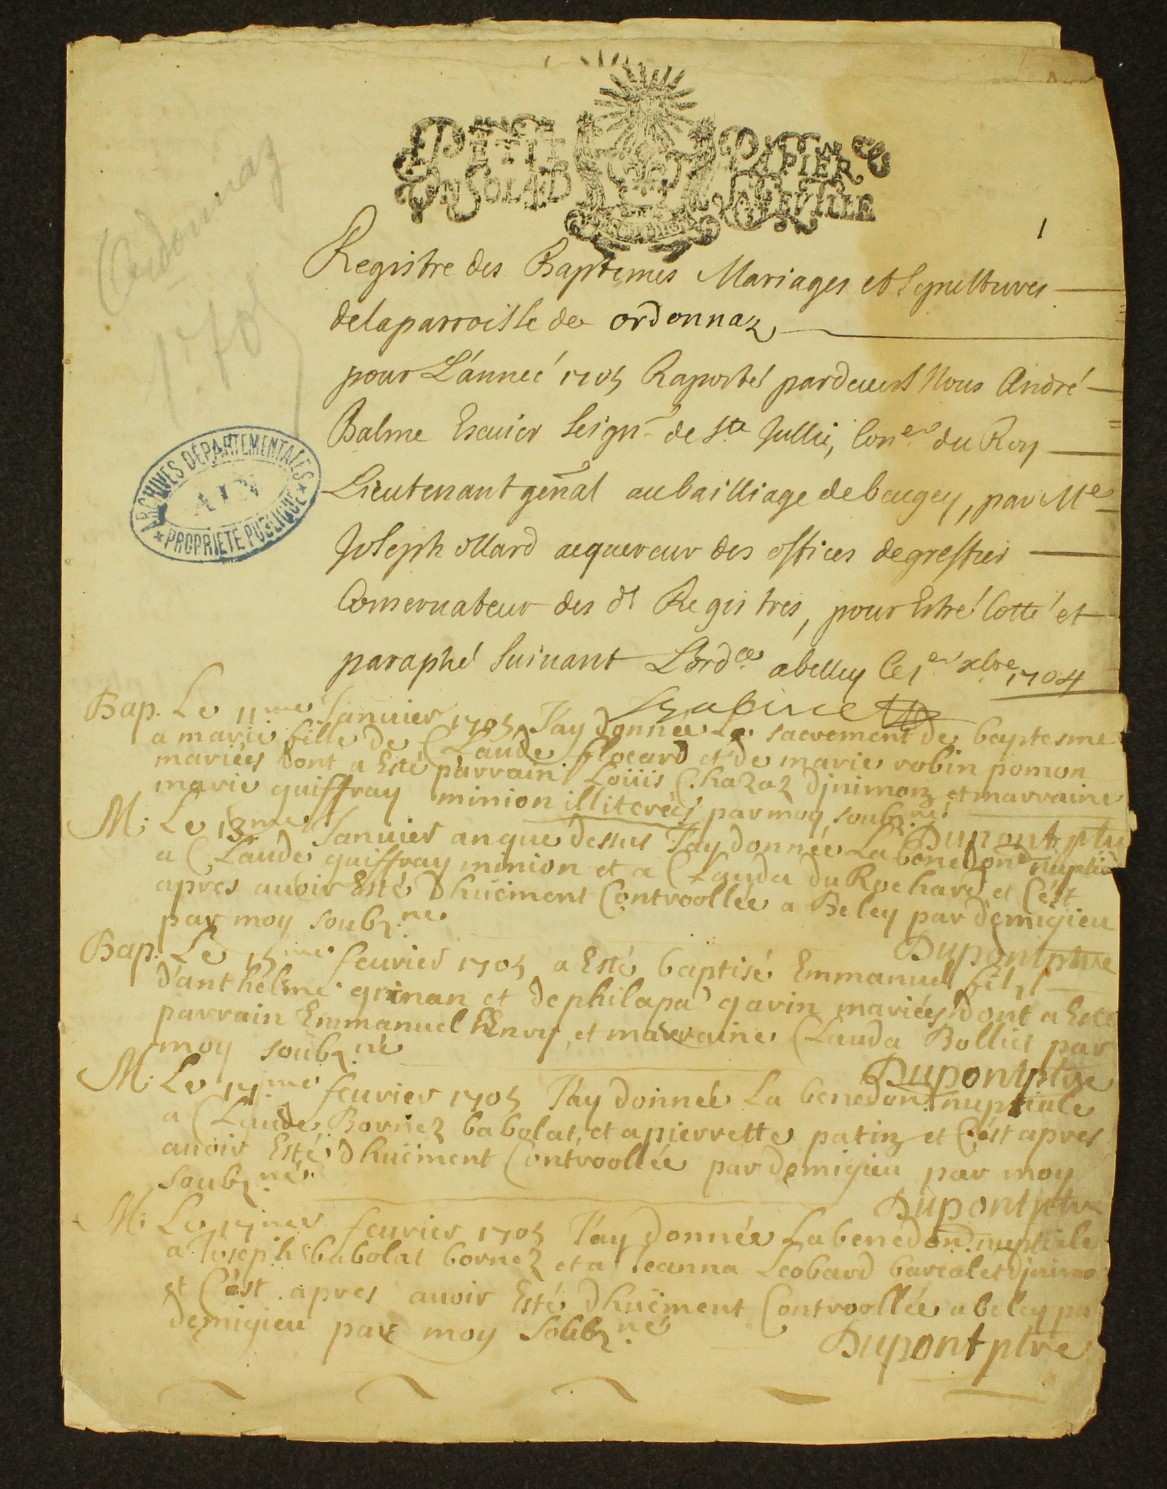 PETIT PAPIER
UN SOL
Ordonnaz
1705
1
Registre des Baptemes Mariages et Sepultures
de la parroisse de ordonnaz
pour L'année 1705 Raporté pardevant Nous André
Balme Escuier Seigr de Ste Jullie, Coner du Roy
Lieutenant genal au bailliage de beugey, par Me
Joseph ollard acquereur des offices de greffier
Conservateur des dt Registres, pour Estre Cotté et
paraphé Suivant L'ordce a belley le 1er xbre 1704
ARCHIVES DÉPARTEMENTALES
AIN
PROPRIÉTÉ PUBLIQUE
Bap. Le 11me Janvier 1705 J'ay donnée Le sacrement de baptesme
a marie fille de Claude flocard et de marie robin pomon
mariés dont a Esté parrain Loüis Chazaz djnimonz et marraine
marie guiffray minion illiterées par moy soubz.né
Dupont ptre
M: Le Janvier an que dessus J'ay donnée La benedon nuptiale
a Claude guiffray minion et a Clauda du Rochard et C'est
apres auoir Esté Dhuëment Controollée a Beley par demigieu
par moy soubz.né
Dupont ptre
Bap. Le 15me feurier 1705 a Esté baptisé Emmanuel filz
d'anthelme grinan et de philapa gavin mariés dont a Esté
parrain Emmanuel hEnry et marraine Clauda Bolliet par
moy soubz.né
Dupont ptre
M: Le 17me feurier 1705 J'ay donnée La benedon nuptiale
a Claude Bornez babolat, et a pierrette patin et C'est apres
auoir Esté Dhuëment Controollée par demigieu par moy
soubz.né
Dupont ptre
M: Le 17me feurier 1705 J'ay donnée La benedon nuptiale
a Joseph babolat bornez et a Jeanna Leobard barcolet
et C'est apres auoir Esté Dhuëment Controollée a beley pa
demigieu par moy Soubz.né
Dupont ptre